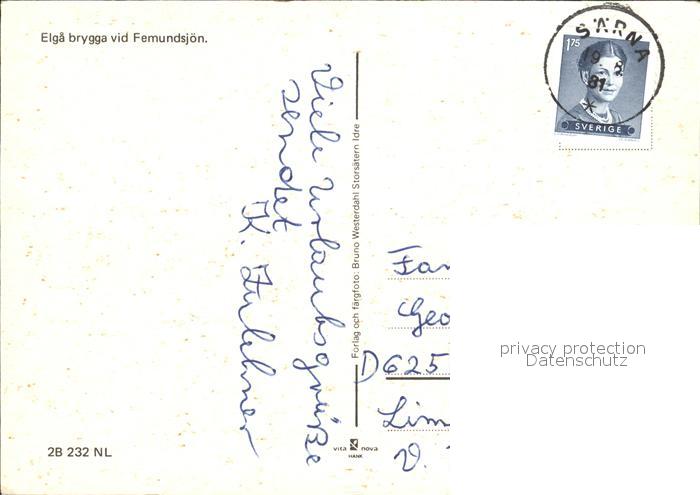 Elgå brygga vid Femundsjön.
SÄRNA
19. 5.
81
1 75
SVERIGE
Viele Urlaubsgrüße
sendet
K.
Förlag och färgfoto: Bruno Westerdahl Storsätern Idre
Fam
Geo
D 625
Lim
V.
privacy protection
Datenschutz
2B 232 NL
vita nova